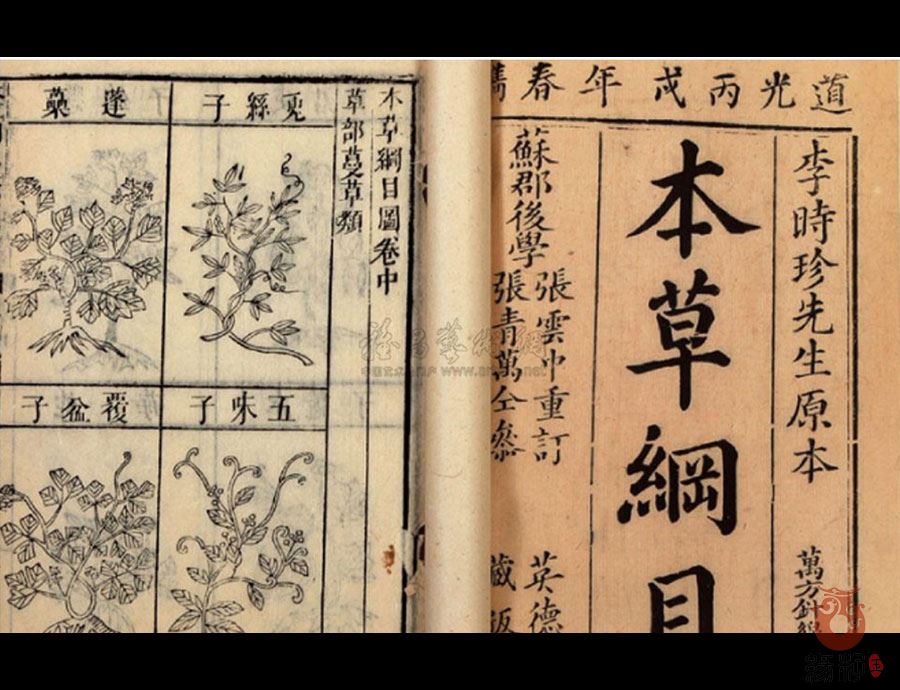 道光丙戌年春鐫
李時珍先生原本
萬方針線
本草綱目
蘇郡後學
張雲中重訂
張青萬仝參
英德
藏版
本草綱目圖卷中
草部蔓草類
兎絲子
蓬虆
五味子
覆盆子